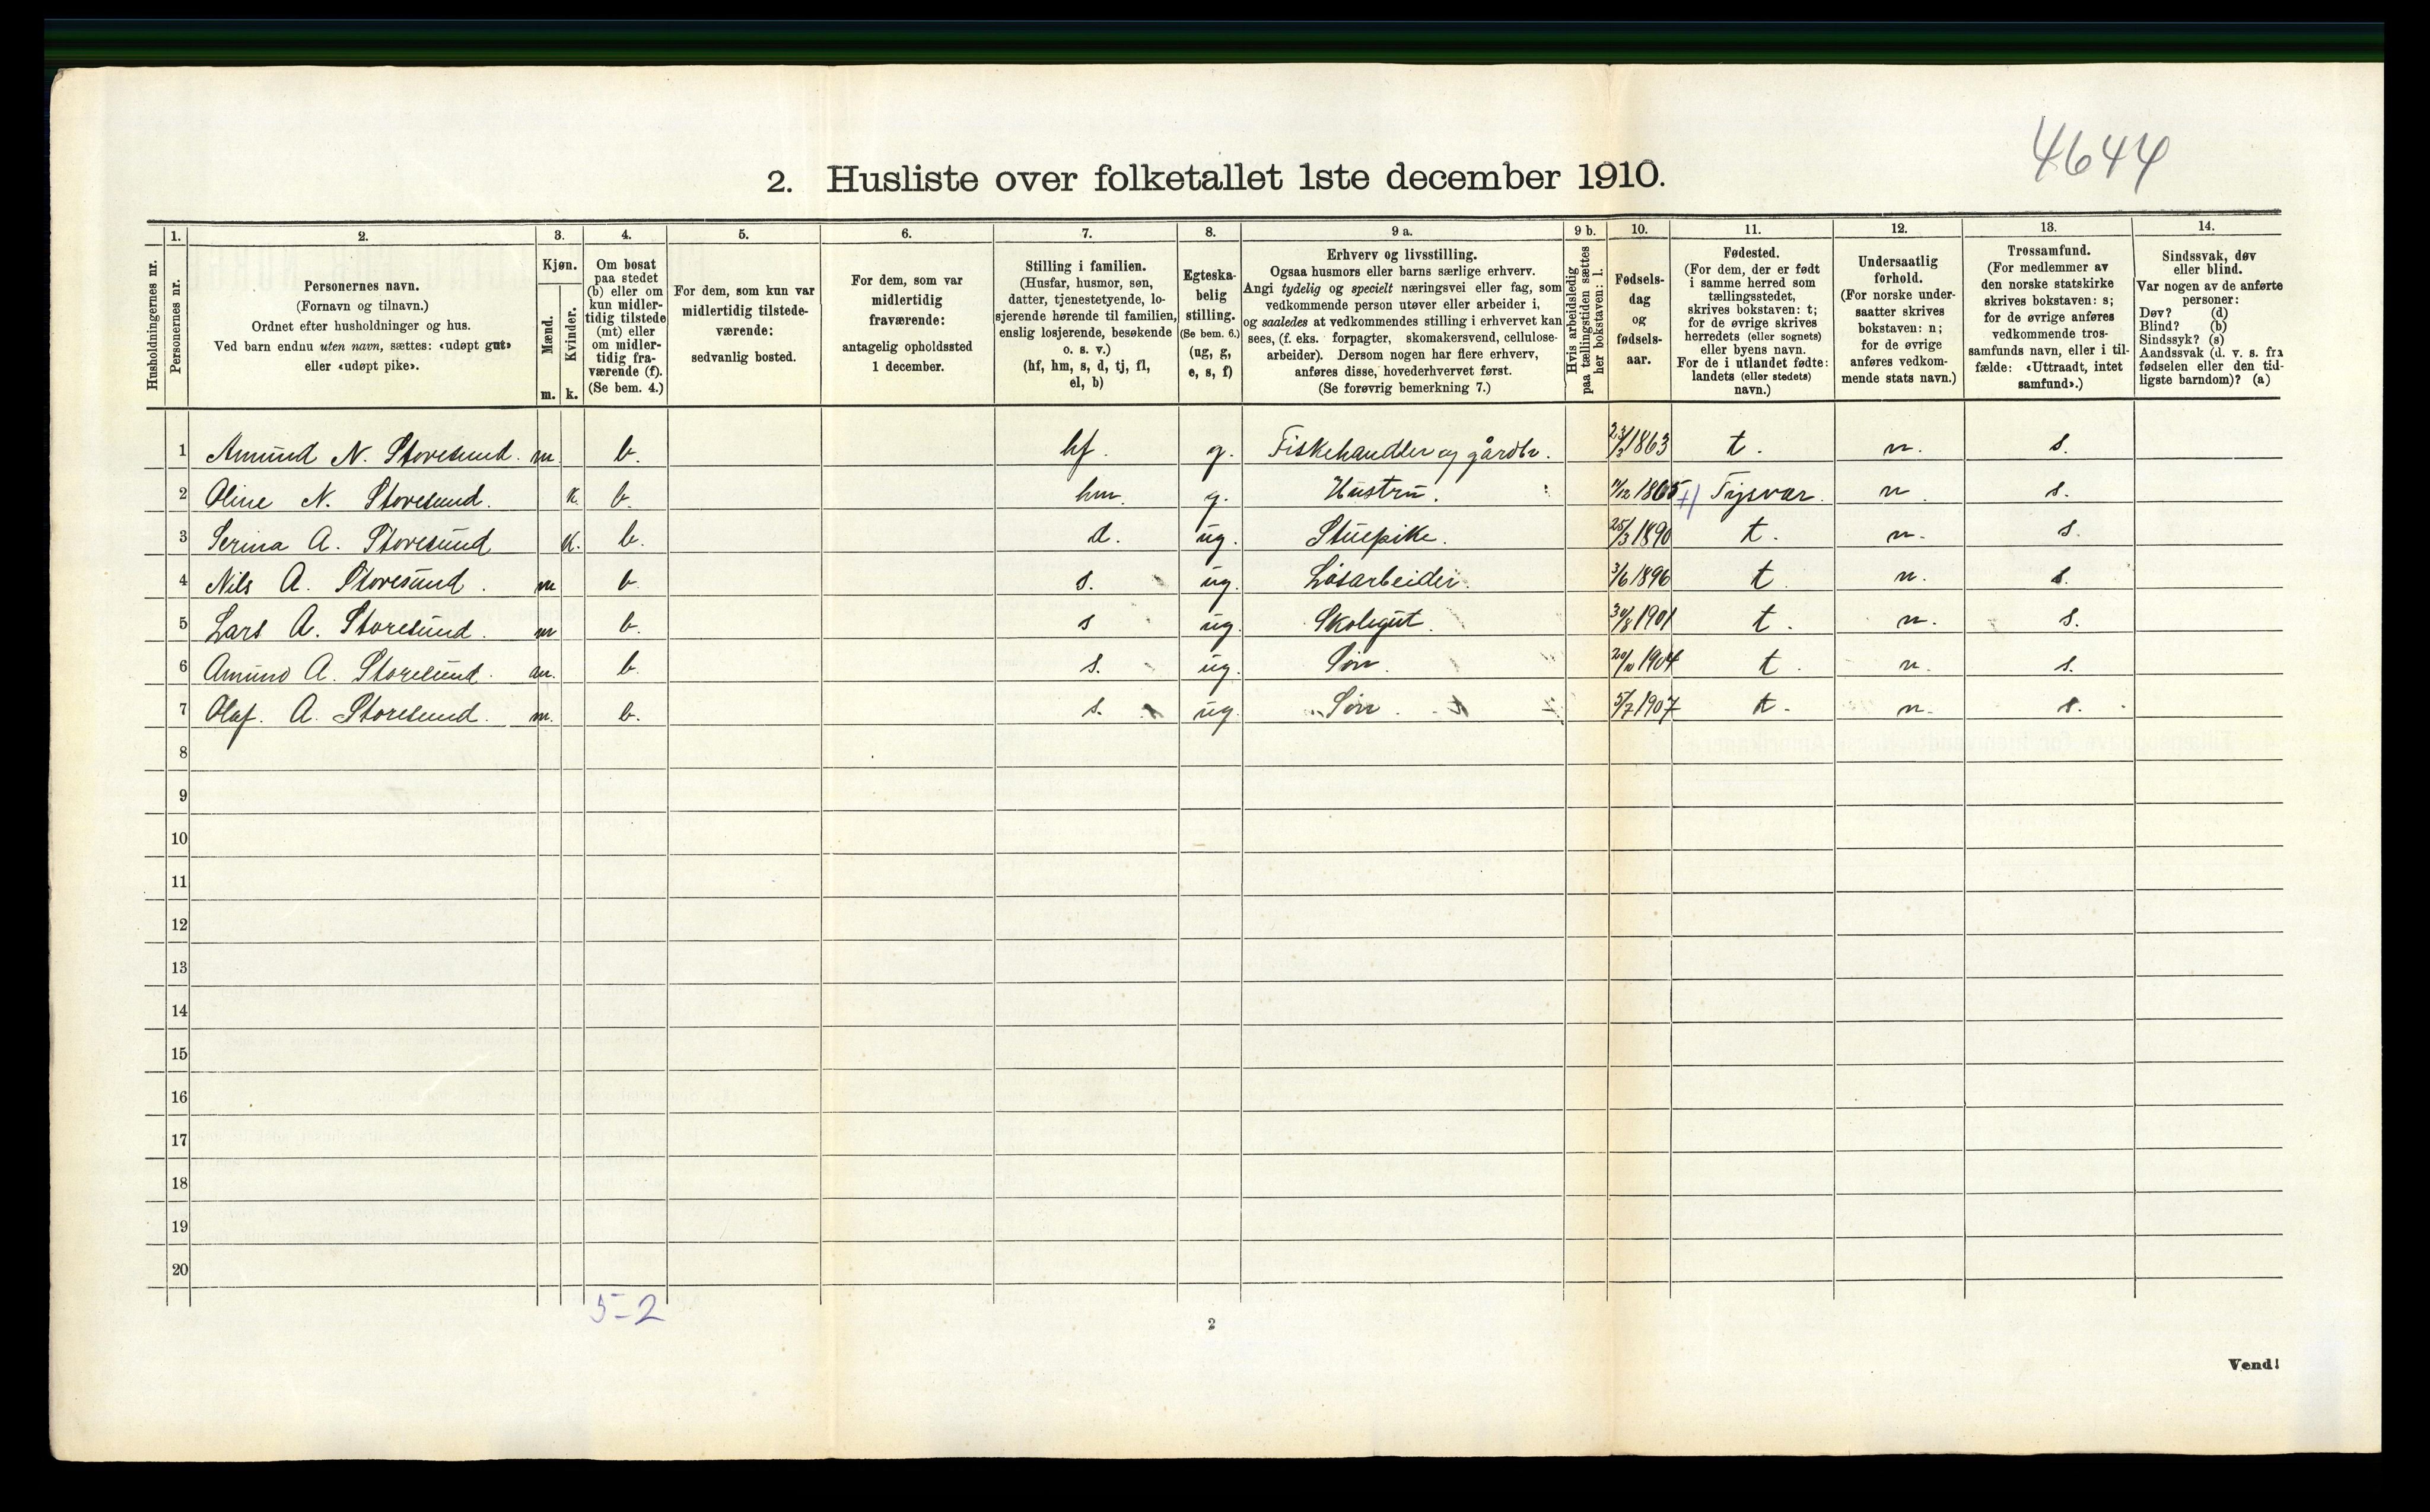 4644
2. Husliste over folketallet 1ste december 1910.
1. 2. 3. 4. 5. 6. 7. 8. 9 a. 9 b. 10. 11. 12. 13. 14.
Husholdningernes nr.
Personernes nr.
Personernes navn.
(Fornavn og tilnavn.)
Ordnet efter husholdninger og hus.
Ved barn endnu uten navn, sættes: «udøpt gut»
eller «udøpt pike».
Kjøn.
Mænd.
Kvinder.
m. k.
Om bosat
paa stedet
(b) eller om
kun midler-
tidig tilstede
(mt) eller
om midler-
tidig fra-
værende (f).
(Se bem. 4.)
For dem, som kun var
midlertidig tilstede-
værende:
sedvanlig bosted.
For dem, som var
midlertidig
fraværende:
antagelig opholdssted
1 december.
Stilling i familien.
(Husfar, husmor, søn,
datter, tjenestetyende, lo-
sjerende hørende til familien,
enslig losjerende, besøkende
o. s. v.)
(hf, hm, s, d, tj, fl,
el, b)
Egteska-
belig
stilling.
(Se bem. 6.)
(ug, g,
e, s, f)
Erhverv og livsstilling.
Ogsaa husmors eller barns særlige erhverv.
Angi tydelig og specielt næringsvei eller fag, som
vedkommende person utøver eller arbeider i,
og saaledes at vedkommendes stilling i erhvervet kan
sees, (f. eks. forpagter, skomakersvend, cellulose-
arbeider). Dersom nogen har flere erhverv,
anføres disse, hovederhvervet først.
(Se forøvrig bemerkning 7.)
Hvis arbeidsledig
paa tællingstiden sættes
her bokstaven: l.
Fødsels-
dag
og
fødsels-
aar.
Fødested.
(For dem, der er født
i samme herred som
tællingsstedet,
skrives bokstaven: t;
for de øvrige skrives
herredets (eller sognets)
eller byens navn.
For de i utlandet fødte:
landets (eller stedets)
navn.)
Undersaatlig
forhold.
(For norske under-
saatter skrives
bokstaven: n;
for de øvrige
anføres vedkom-
mende stats navn.)
Trossamfund.
(For medlemmer av
den norske statskirke
skrives bokstaven: s;
for de øvrige anføres
vedkommende tros-
samfunds navn, eller i til-
fælde: «Uttraadt, intet
samfund».)
Sindssvak, døv
eller blind.
Var nogen av de anførte
personer:
Døv? (d)
Blind? (b)
Sindssyk? (s)
Aandssvak (d. v. s. fra
fødselen eller den tid-
ligste barndom)? (a)
1 Amund N. Storesund. m b. hf. g. Fiskehandler og gårdbr. 23/2 1863 t. n. s.
2 Oline N. Storesund. k. b. hm. g. Hustru. 11/12 1865 +) Tysvær. n. s.
3 Serina A. Storesund K. b. d. ug. Stuepike. 25/3 1890 t. n. s.
4 Nils A. Storesund. m b. s. ug. Løsarbeider. 3/6 1896 t n. s.
5 Lars A. Storesund. m b. s ug. Skolegut. 30/8 1901 t. n. s.
6 Amund A. Storesund. m. b. s. ug. Søn. 20/10 1904 t. n. s.
7 Olaf. A. Storesund. m. b. s. ug. Søn. 5/7 1907 t. n. s.
8
9
10
11
12
13
14
15
16
17
18
19
20
5-2
2
Vend!